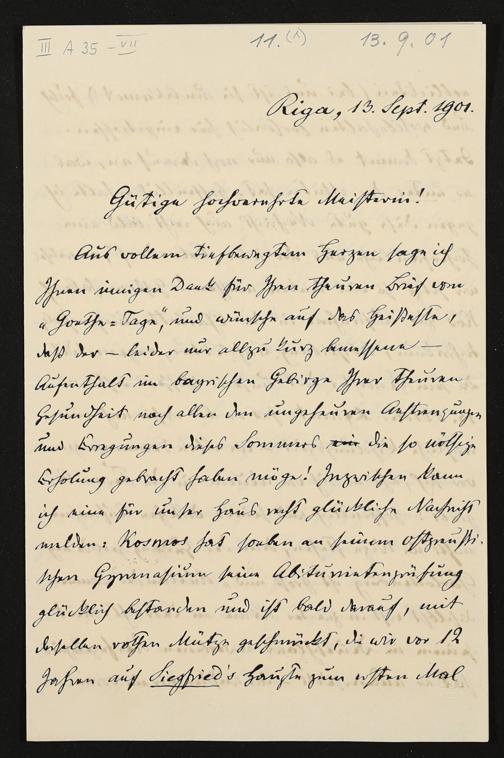 III A 35 - VII 11.(1) 13.9.01
Riga, 13. Sept. 1901.
Gütige hochverehrte Meisterin!
Aus vollem tiefbewegtem Herzen sage ich
Ihnen innigen Dank für Ihren theuren Brief vom
„Goethe=Tage", und wünsche auf das Heißeste,
daß der – leider nur allzu kurz bemessene –
Aufenthalt im bayrischen Gebirge Ihrer theuren
Gesundheit nach allen den ungeheuren Anstrengungen
und Erregungen dieses Sommers die so nöthige
Erholung gebracht haben möge! Inzwischen kann
ich eine für unser Haus recht glückliche Nachricht
melden: Kosmos hat soeben an seinem ostpreußi-
schen Gymnasium seine Abiturientenprüfung
glücklich bestanden und ist bald darauf, mit
derselben rothen Mütze geschmückt, die wir vor 12
Jahren auf Siegfried's Haupte zum ersten Mal